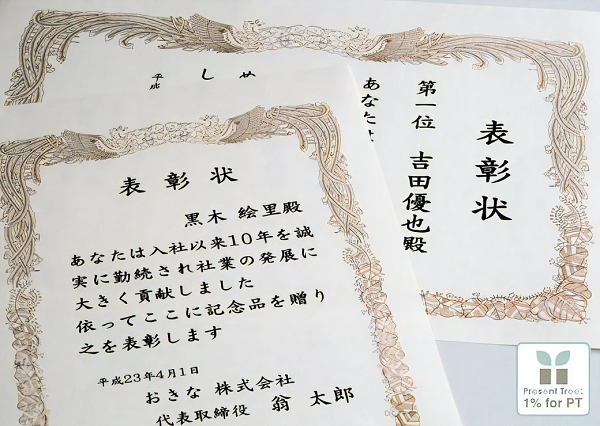 表彰状
黒木 絵里殿
あなたは入社以来10年を誠
実に勤続され社業の発展に
大きく貢献しました
依ってここに記念品を贈り
之を表彰します
平成23年4月1日
おきな 株式会社
代表取締役 翁 太郎
表彰状
第一位 吉田優也殿
あなたは
し
平成
Present Tree:
1% for PT